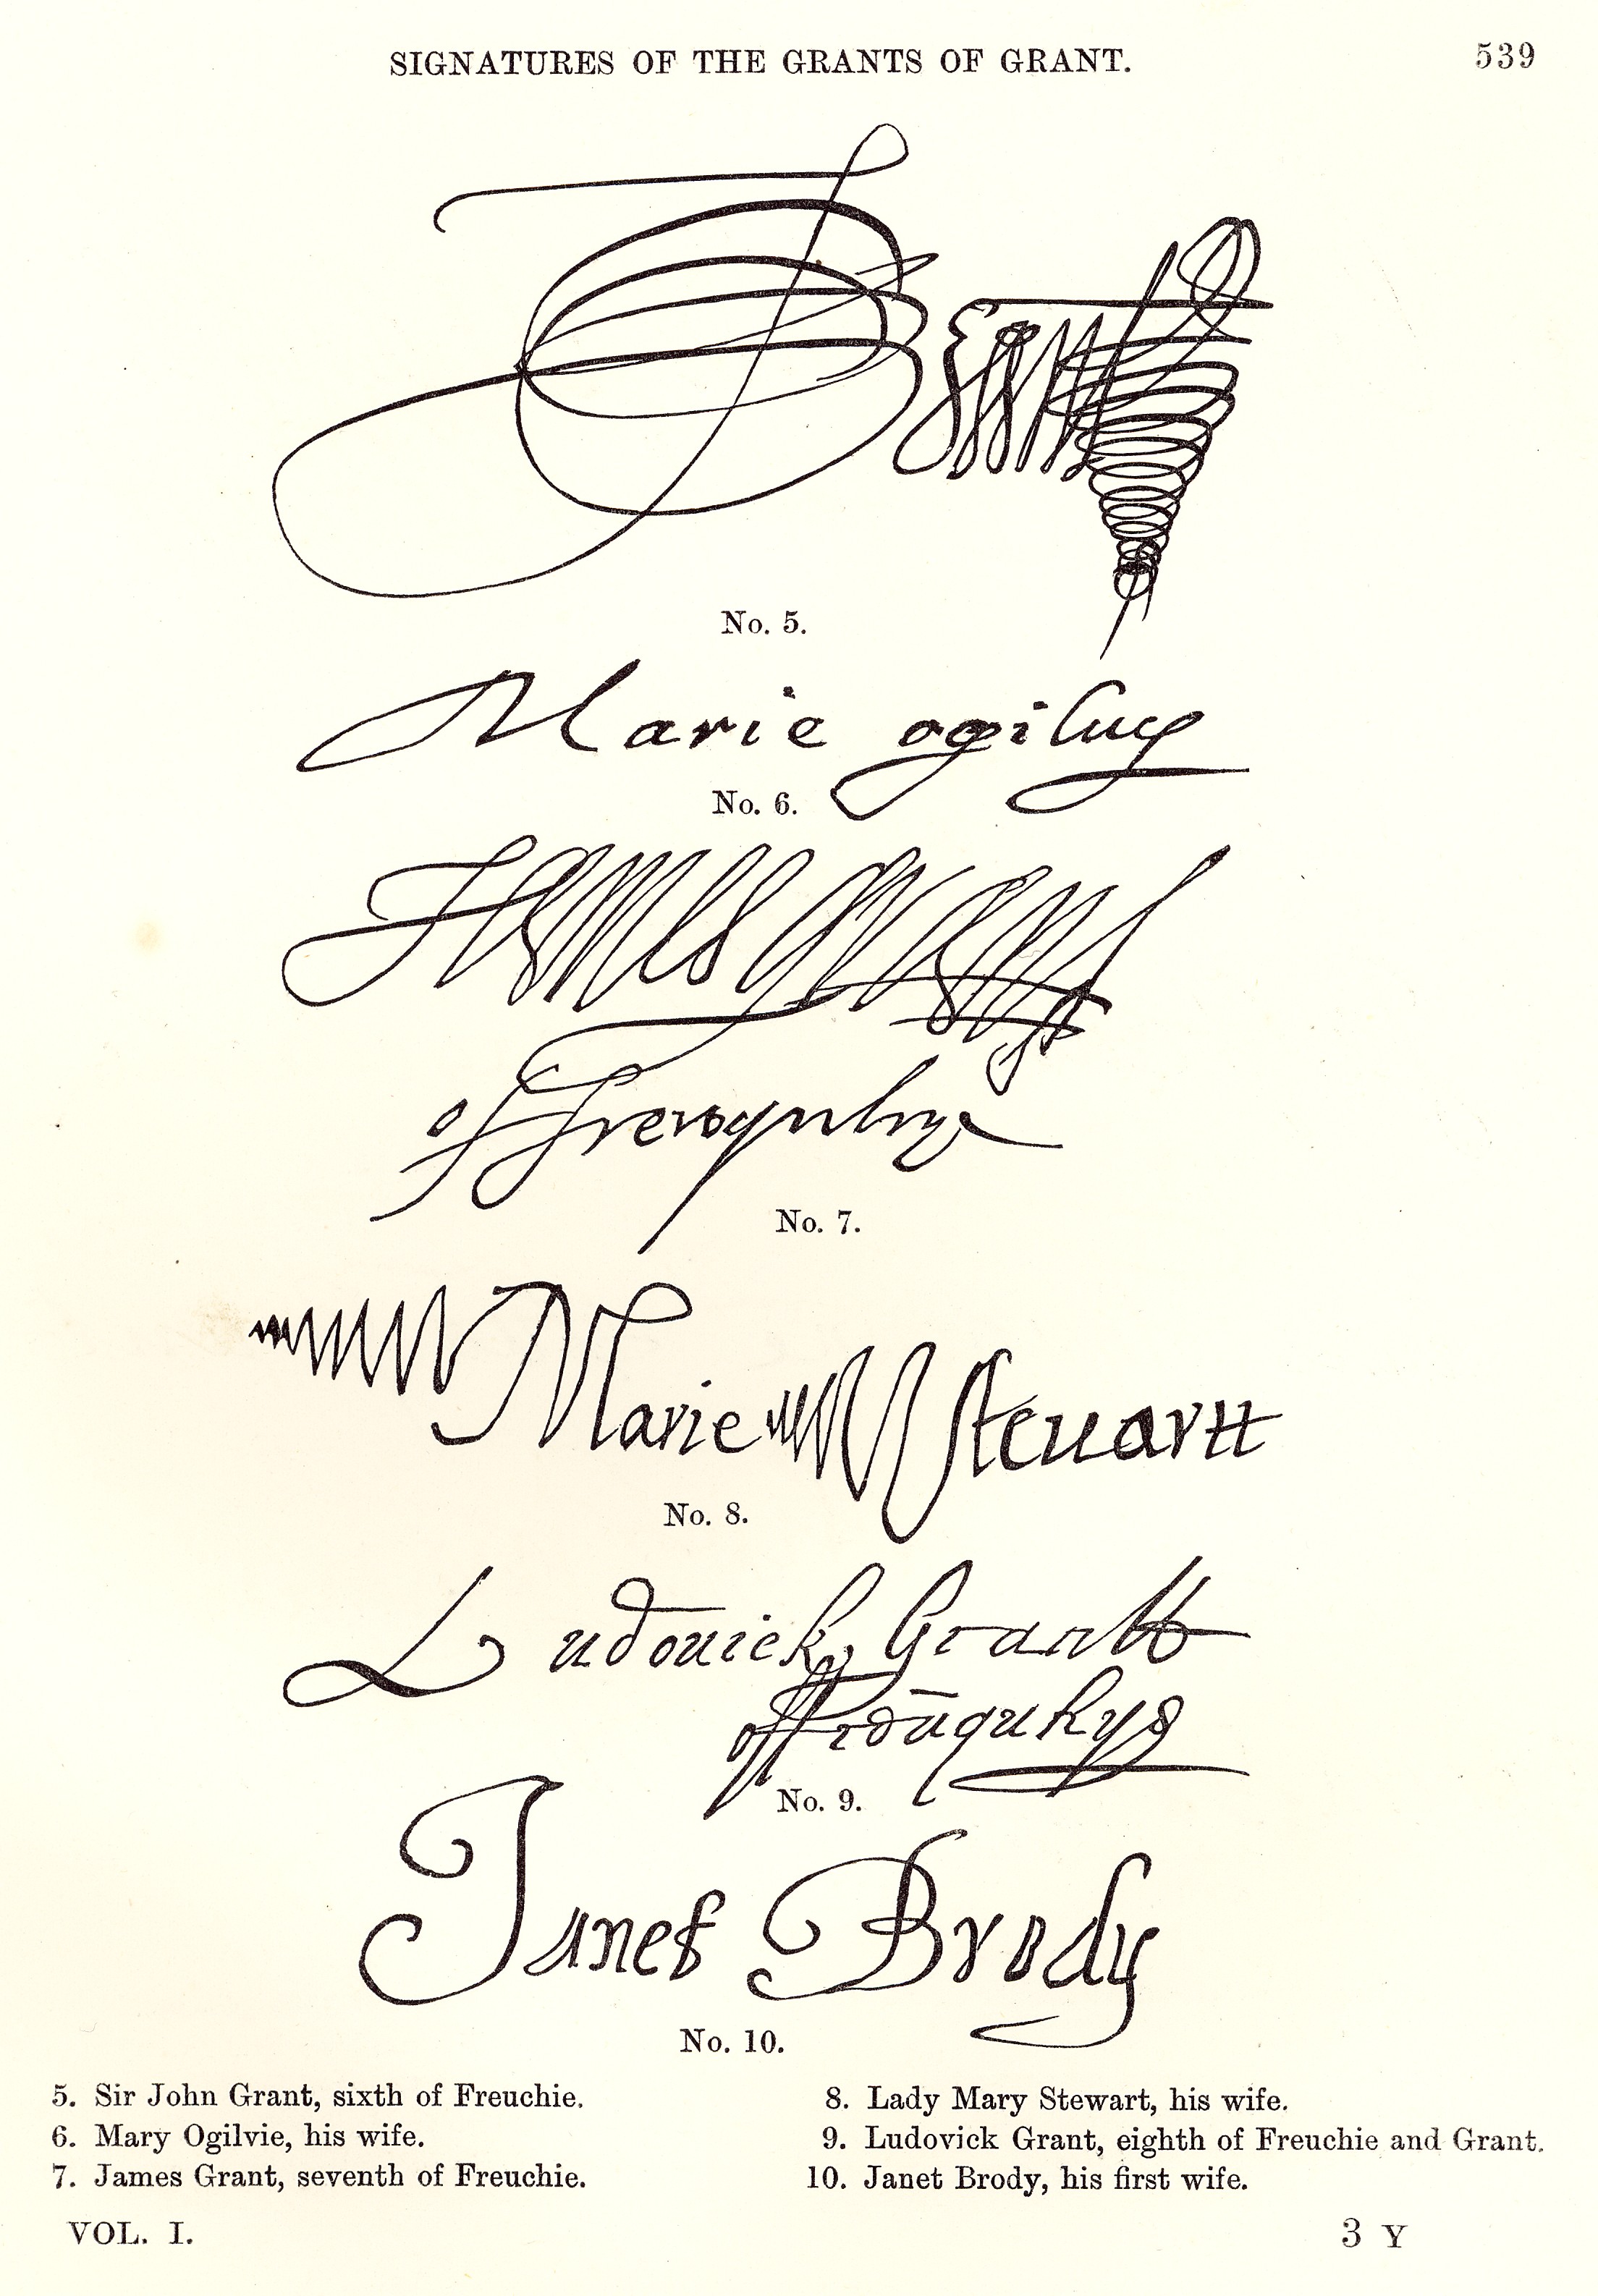 SIGNATURES OF THE GRANTS OF GRANT. 539
No. 5.
Marie ogiluy
No. 6.
James grant
of
No. 7.
Marie Steuartt
No. 8.
Ludouick Grantt
No. 9.
Janet Brody
No. 10.
5. Sir John Grant, sixth of Freuchie.
6. Mary Ogilvie, his wife.
7. James Grant, seventh of Freuchie.
8. Lady Mary Stewart, his wife.
9. Ludovick Grant, eighth of Freuchie and Grant.
10. Janet Brody, his first wife.
VOL. I. 3 Y